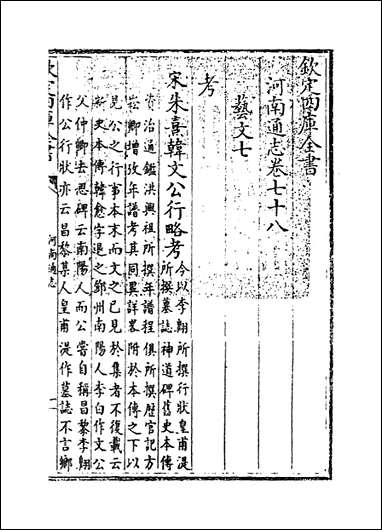 欽定四庫全書
河南通志卷七十八
藝文七
考
宋朱熹韓文公行略考
今以李翱所撰行狀皇甫湜
所撰墓誌神道碑舊史本傳
資治通鑑洪興祖所撰年譜程俱所撰歷官記方
崧卿增攷年譜考其同異詳畧附於本傳之下以
見公之行事本末而文之已見於集者不復載云
新史本傳韓愈字退之鄧州南陽人李白作文公
父仲卿去思碑云南陽人而公嘗自稱昌黎李翱
作公行狀亦云昌黎某人皇甫湜作墓誌不言鄉
欽定四庫全書
河南通志
一